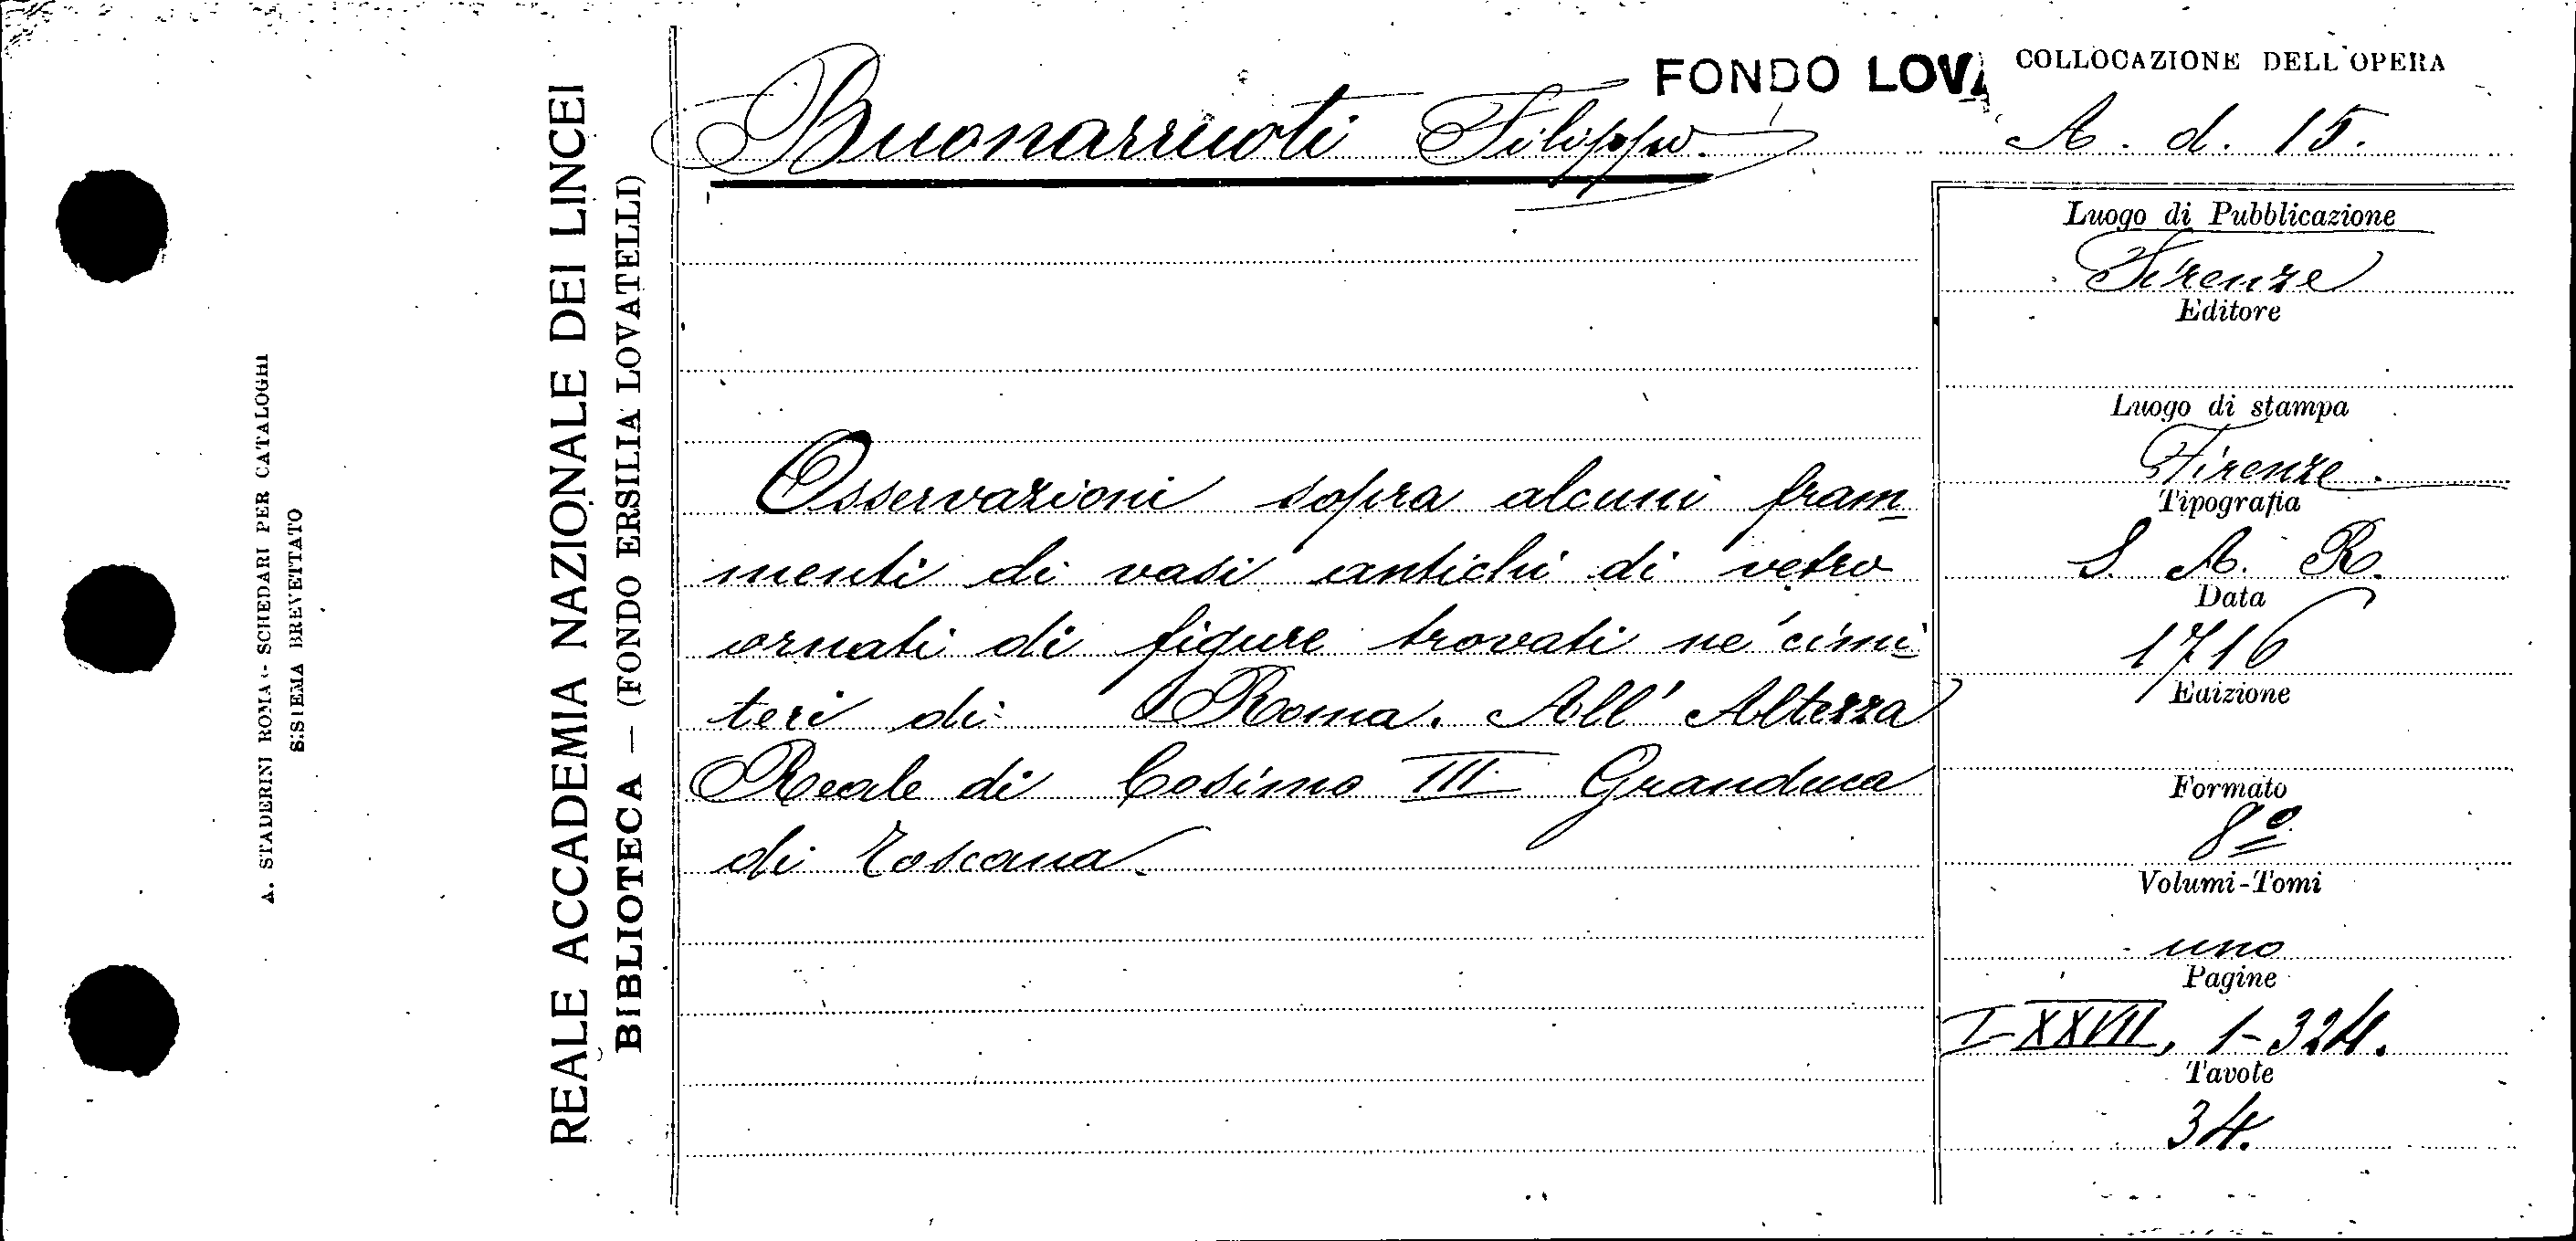 A. STADERINI ROMA - SCHEDARI PER CATALOGHI
SISTEMA BREVETTATO
REALE ACCADEMIA NAZIONALE DEI LINCEI
BIBLIOTECA — (FONDO ERSILIA LOVATELLI)
FONDO LOVA
COLLOCAZIONE DELL'OPERA
Buonarruoti Filippo.
A. d. 15.
Osservazioni sopra alcuni fram
menti di vasi antichi di vetro
ornati di figure trovati ne' cimi
teri di Roma. All' Altezza
Reale di Cosimo III Granduca
di Toscana.
Luogo di Pubblicazione
Firenze
Editore
Luogo di stampa
Firenze.
Tipografia
S. A. R.
Data
1716
Edizione
Formato
8º
Volumi-Tomi
uno
Pagine
I-XXVII, 1-324.
Tavole
34.